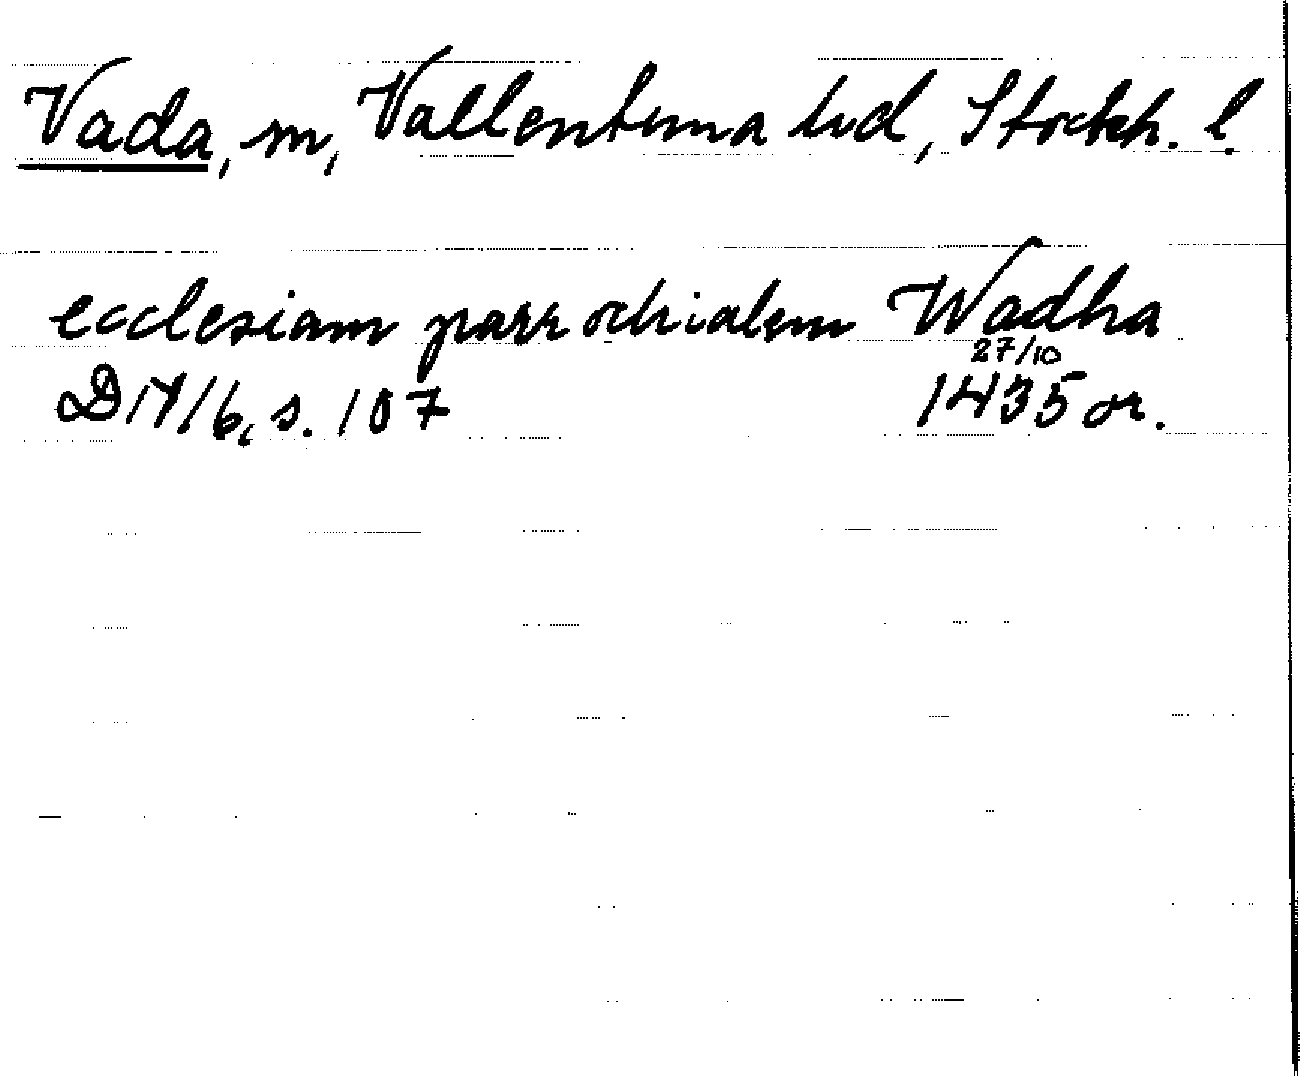 Vada, sn, Vallentuna hd, Stockh. l.
ecclesiam parrochialem Wadha
27/10
D 14/6, s. 107 1435 or.